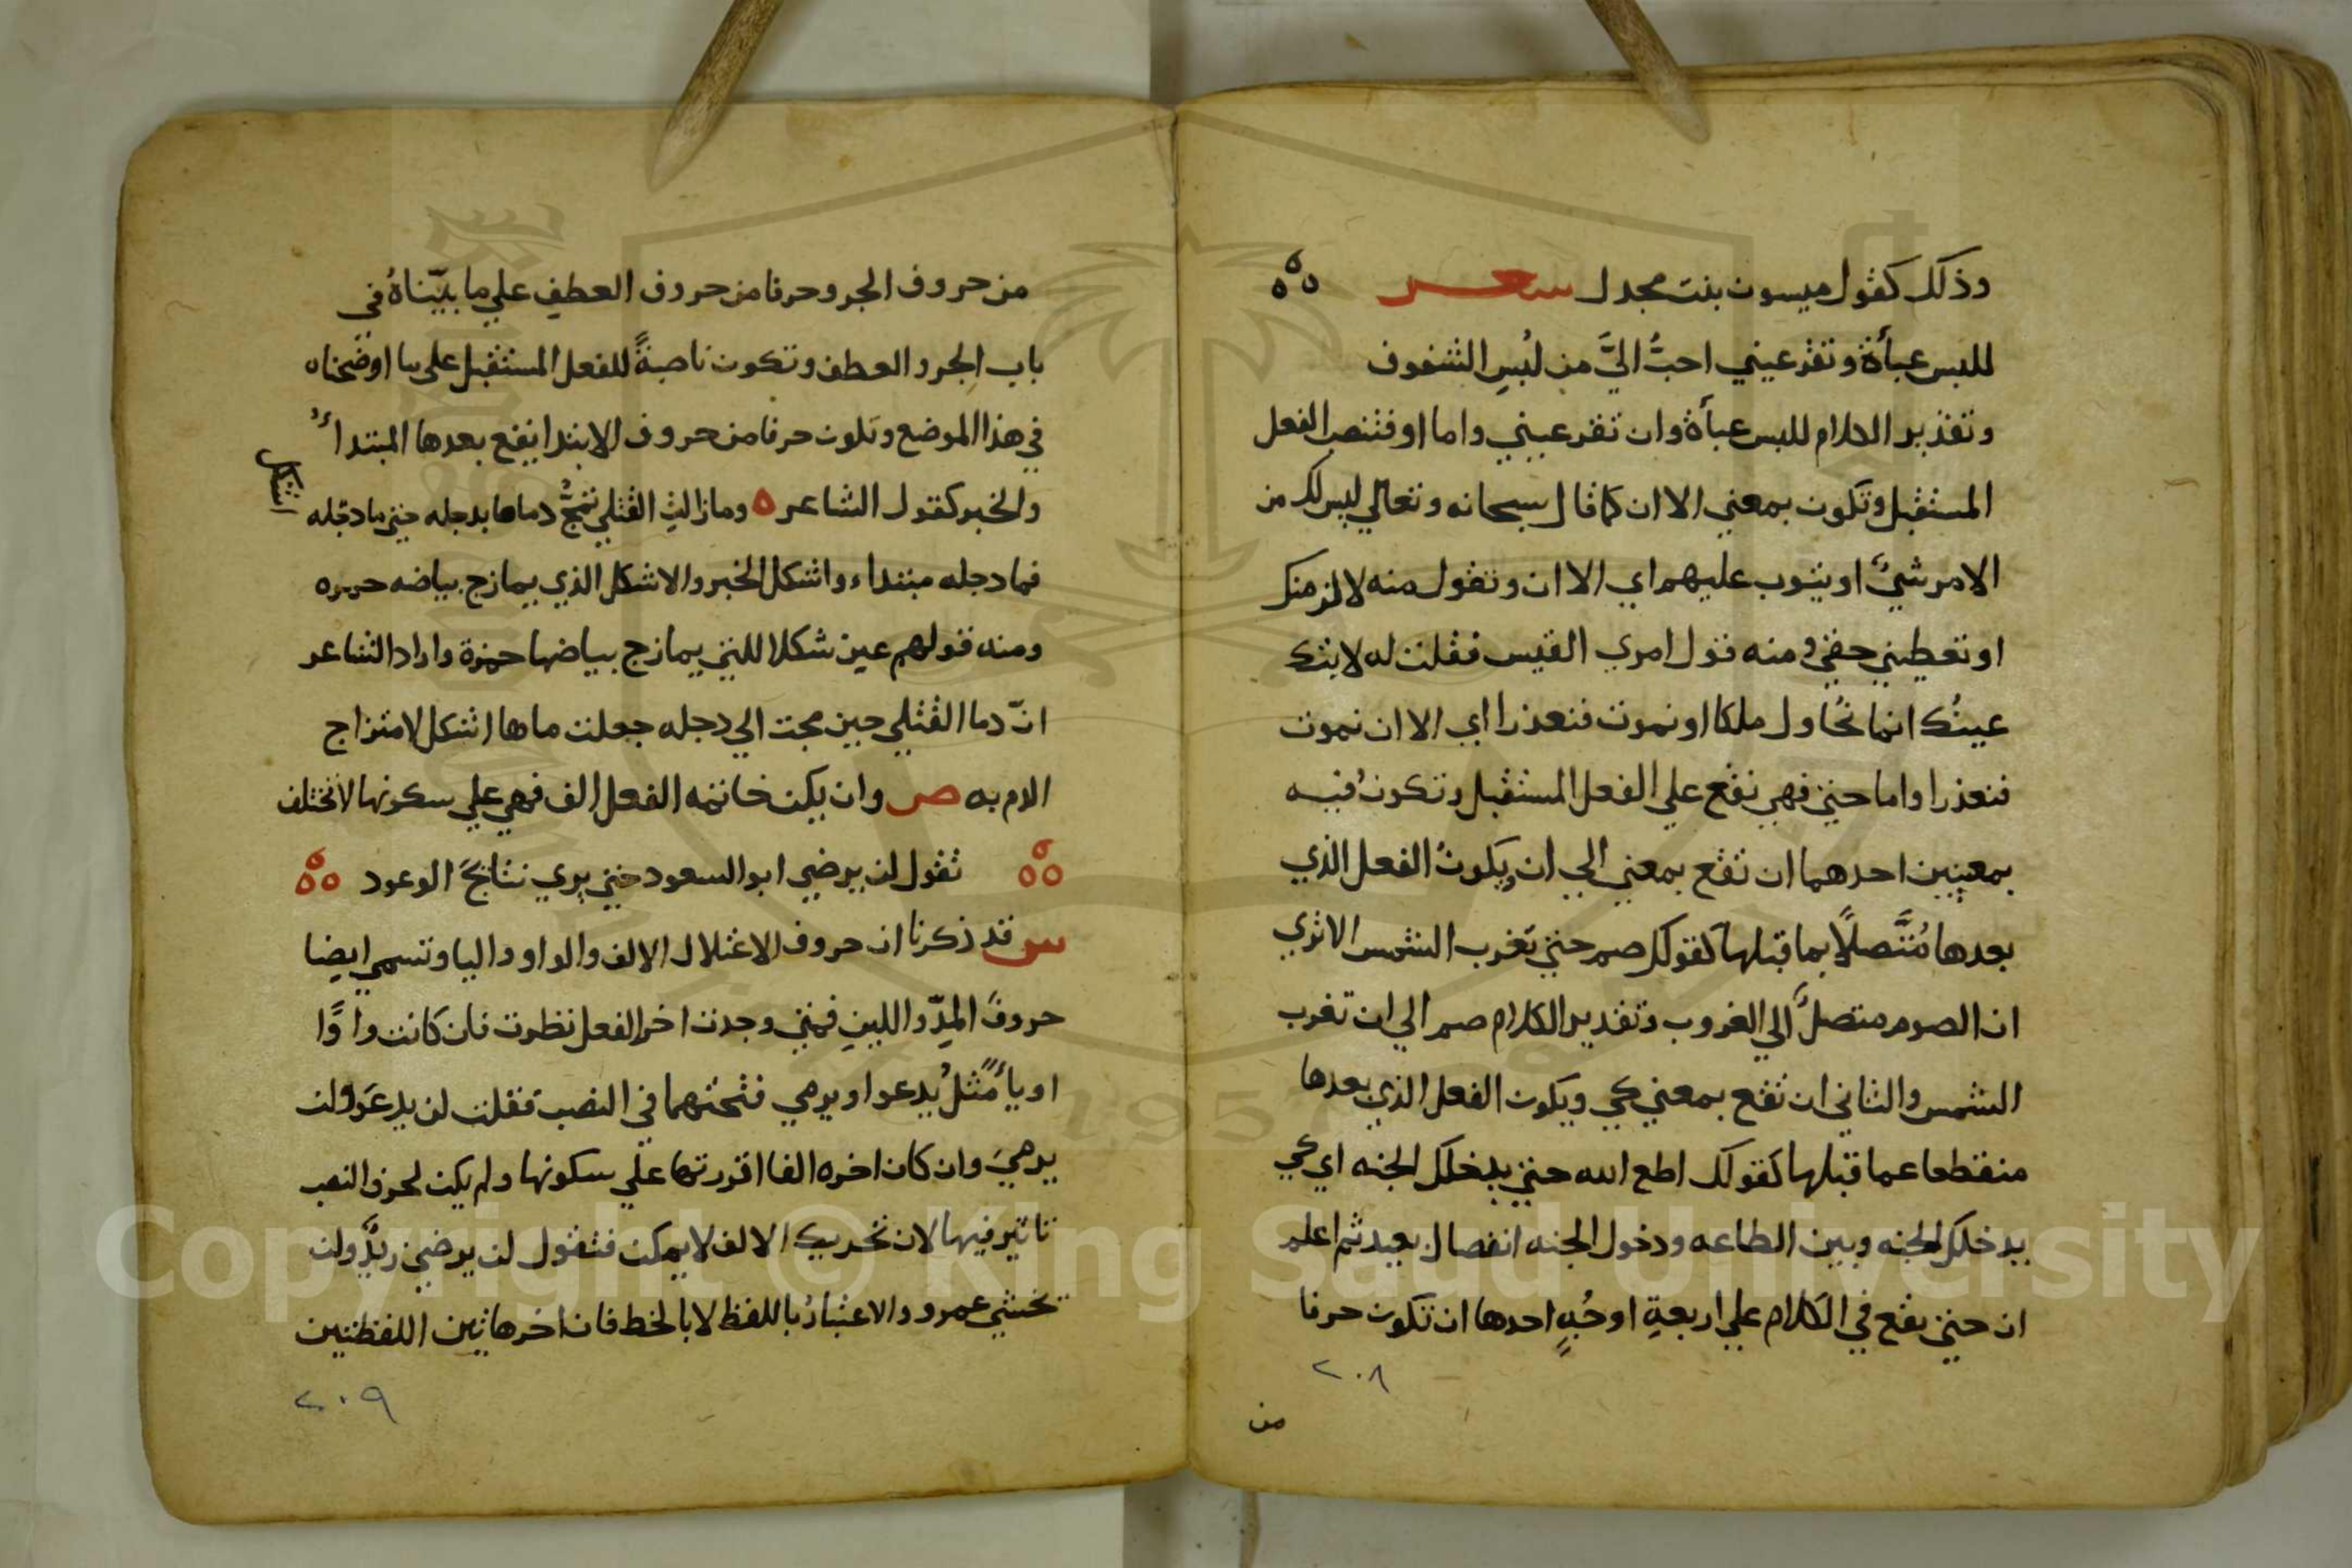 وذلك كقول ميسون بنت مجدل شعر
للبس عبأة وتقر عيني احبُّ اليَّ من لُبسِ الشفوف
وتقدير الكلام للبس عبأة وان تقر عيني واما او فتنصب الفعل
المستقبل وتكون بمعني الا ان كما قال سبحانه وتعالي ليس لك من
الامر شيءٌ او يتوب عليهم اي الا ان وتقول منه لالزمنك
او تعطيني حقي ومنه قول امري القيس فقلت له لا تبك
عينُك انما نُحاول ملكا او نموت فنعذرا اي الا ان نموت
فنعذرا واما حتي فهي تقع علي الفعل المستقبل وتكون فيه
بمعنيين احدهما ان تقع بمعني الي ان ويكونُ الفعل الذي
بعدها مُتَّصلاً بما قبلها كقولك صم حتي تغرب الشمس الا تري
ان الصوم متصلٌ الي الغروب وتقدير الكلام صم الي ان تغرب
الشمس والثاني ان تقع بمعني كي ويكون الفعل الذي بعدها
منقطعا عما قبلها كقولك اطع الله حتي يدخلك الجنه اي كي
يدخلك الجنه وبين الطاعه ودخول الجنه انفصال بعيد ثم اعلم
ان حتي يقع في الكلام علي اربعةِ اوجُهٍ احدها ان تكون حرفا
٢٠٨
من
من حروف الجر وحرفا من حروف العطفِ علي ما بيّناهُ في
باب الجر والعطف وتكون ناصبةً للفعل المستقبل علي ما اوضحناه
في هذا الموضع وتكون حرفا من حروف الابتدا يقع بعدها المبتداءُ
والخبر كقول الشاعر ه وما زالتِ القتلي تمجُّ دماها بدجله حتي ما دجله
اشكل
فما دجله مبتداء واشكل الخبر والاشكل الذي يمازج بياضه حمره
ومنه قولهم عين شكلا للتي يمازج بياضها حمزة واراد الشاعر
انّ دما القتلي حين مجت الي دجله جعلت ماها اشكل لامتزاج
الدم به ص وان يكن خاتمه الفعل الف فهي علي سكونها لا تختلف
تقول لن يرضي ابو السعود حتي يري نتائجَ الوعود
س قد ذكرنا ان حروف الاعتلال الالف والواو واليا وتسمي ايضا
حروفَ المدِّ واللينِ فمتي وجدت اخر الفعل نظرت فان كانت واوًا
او ياءً مثلُ يدعوا ويرمي فتحتهما في النصب فقلت لن يدعوَ ولن
يرميَ وان كان اخره الفا اقررتها علي سكونها ولم يكن لحرف النصب
تاثير فيها لان تحريك الالف لا يمكن فتقول لن يرضي زيدٌ ولن
تخشي عمرو والاعتبارُ باللفظ لا بالخط فان اخر هاتين اللفظتين
٢٠٩